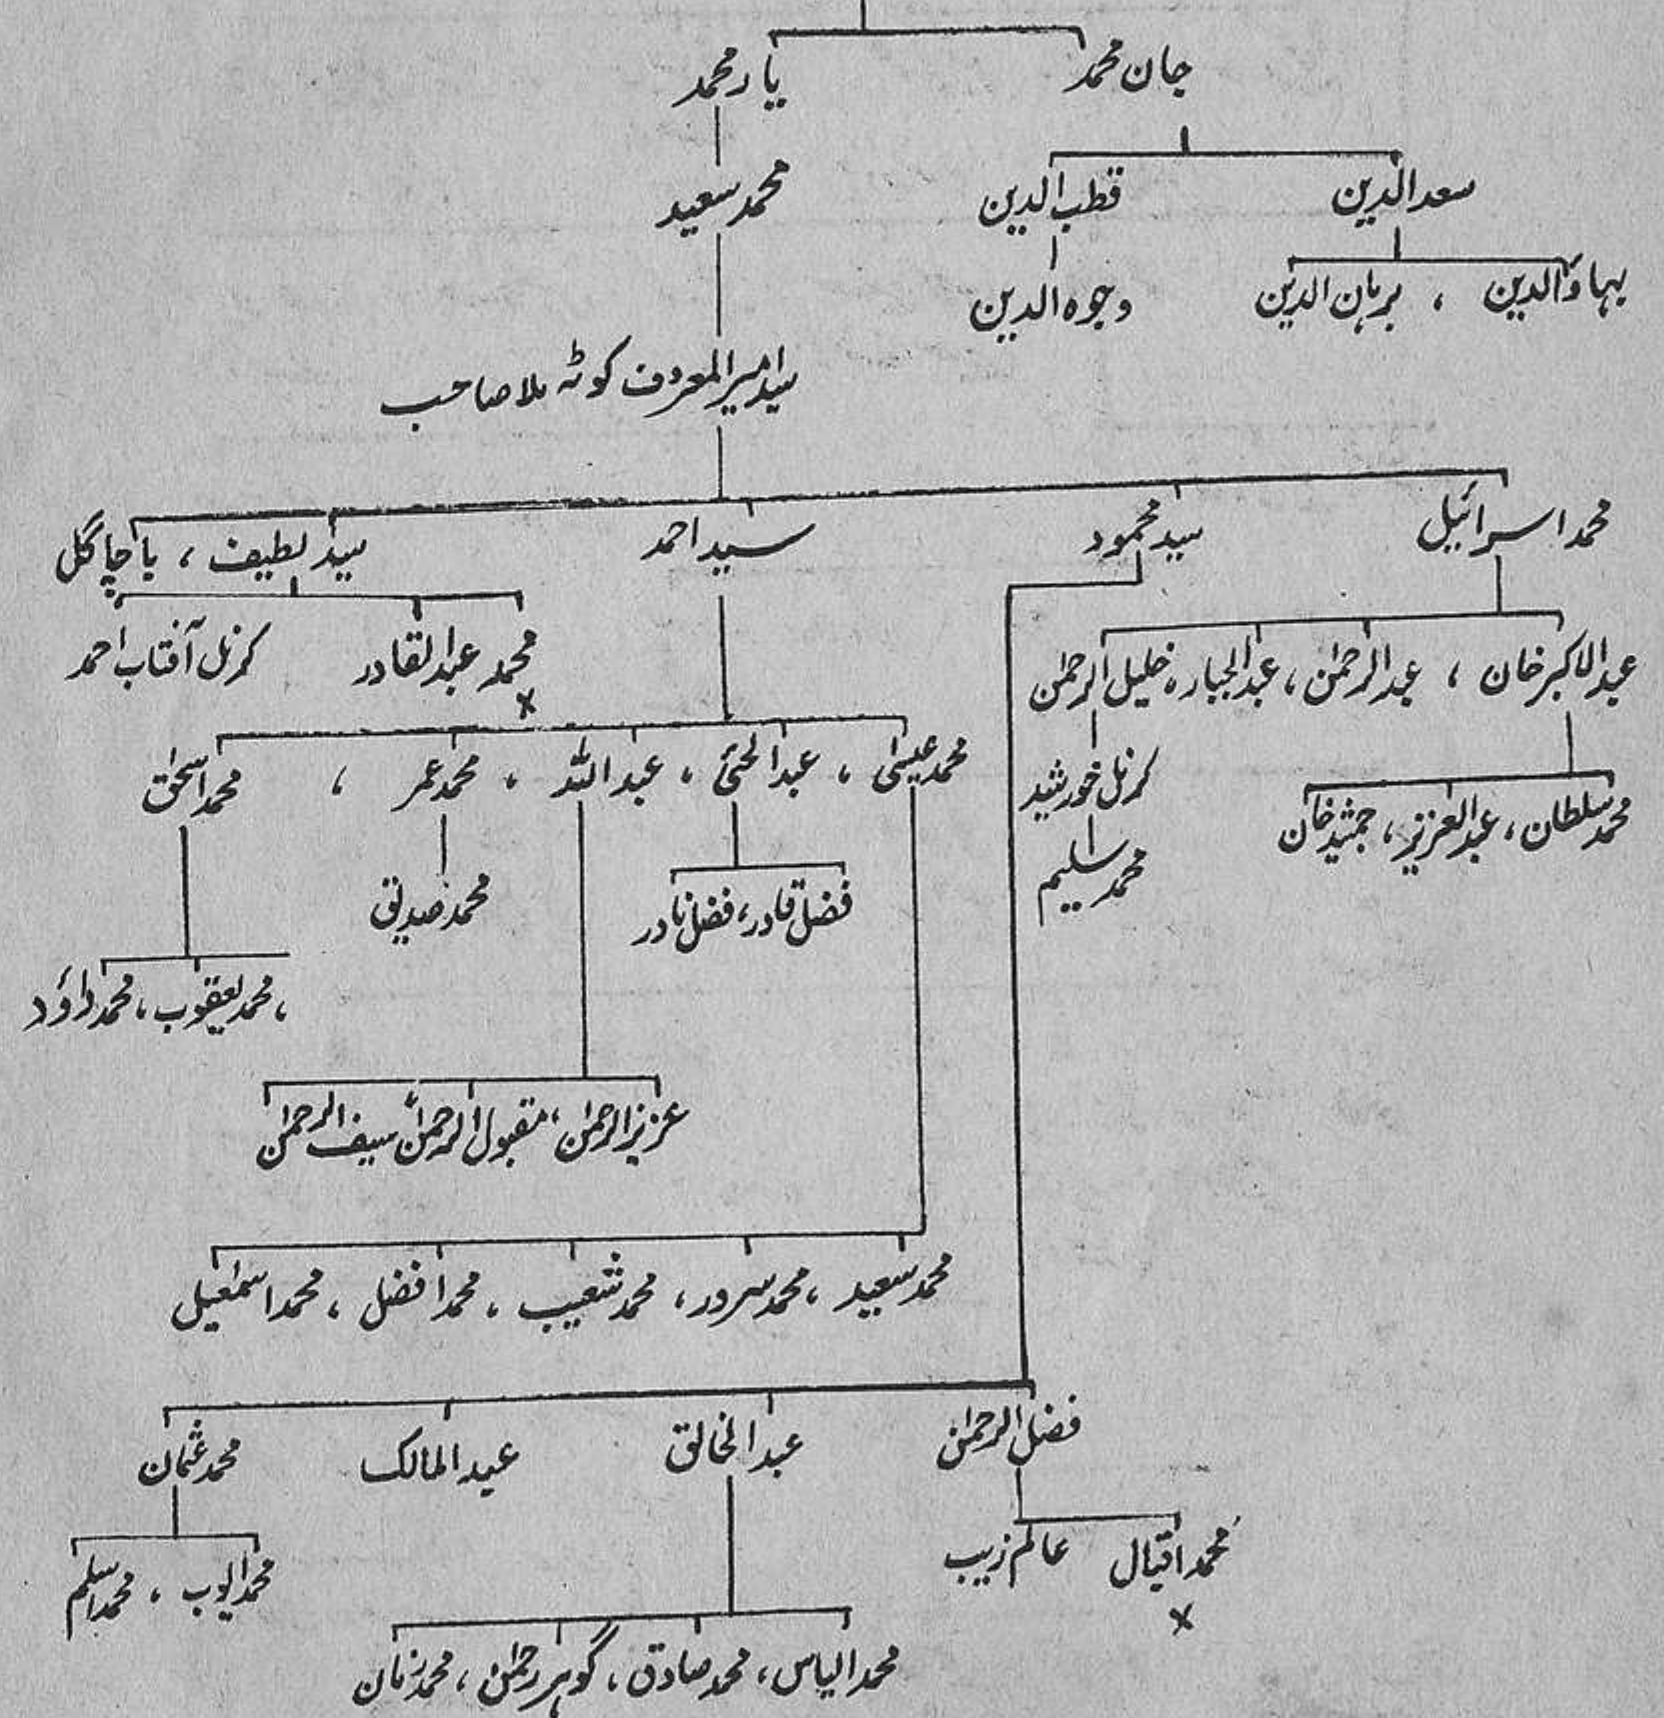 جان محمد
یار محمد
سعد الدین
قطب الدین
محمد سعید
بہاؤالدین ، برہان الدین
وجوہ الدین
سید امیر المعروف کوٹہ ملا صاحب
محمد اسرائیل
سید محمود
سید احمد
سید لطیف ، باچا گل
عبدالاکبر خان ، عبدالرحمٰن ، عبدالجبار ، خلیل الرحمٰن
محمد عبدالقادر
کرنل آفتاب احمد
x
محمد عیسیٰ ، عبدالحئی ، عبداللہ ، محمد عمر ، محمد اسحٰق
کرنل خورشید
محمد سلطان ، عبدالعزیز ، جمشید خان
محمد سلیم
فضل قادر ، فضل نادر
محمد صدیق
، محمد یعقوب ، محمد داؤد
عزیز الرحمٰن ، مقبول الرحمٰن ، سیف الرحمٰن
محمد سعید ، محمد سرور ، محمد شعیب ، محمد افضل ، محمد اسمٰعیل
فضل الرحمٰن
عبدالخالق
عبدالمالک
محمد عثمان
محمد اقبال
عالم زیب
x
محمد ایوب ، محمد اسلم
محمد الیاس ، محمد صادق ، گوہر رحمٰن ، محمد زمان